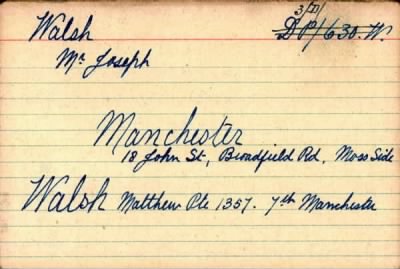 Walsh
3/D/
DP/630.W.
Mr Joseph
Manchester
18 John St, Broadfield Rd, Moss Side
Walsh Matthew Pte 1357. 7th Manchester